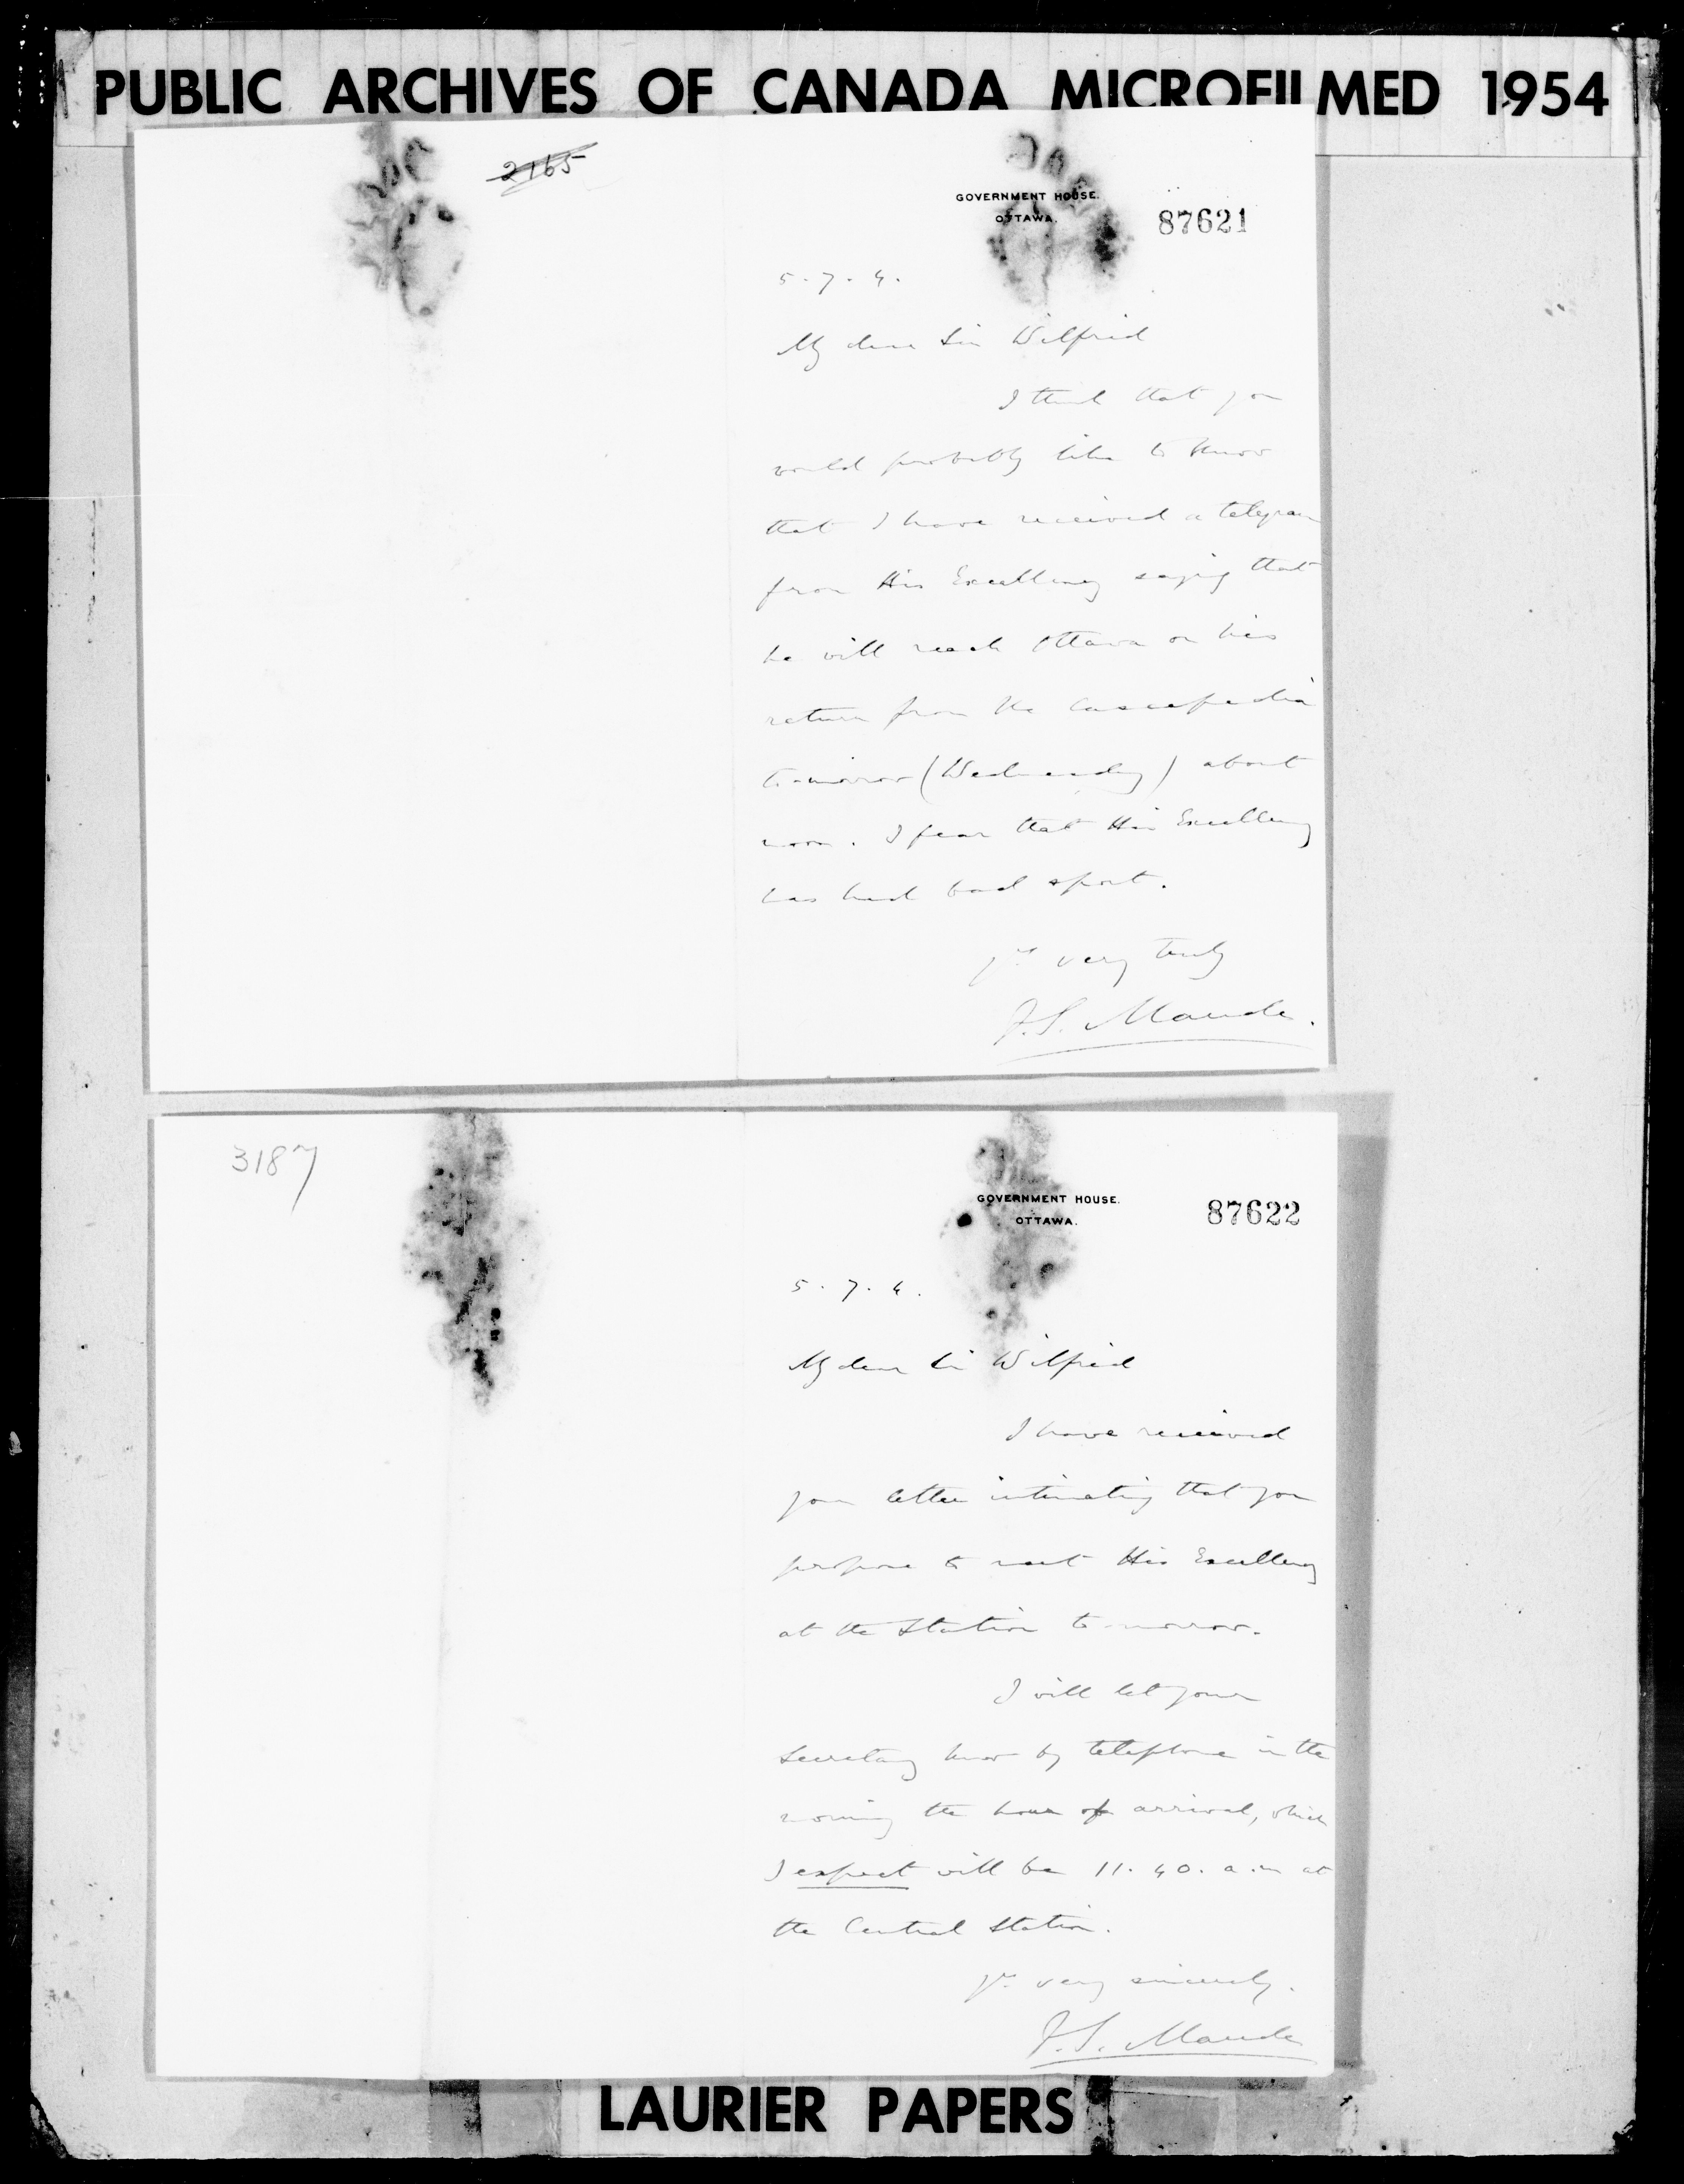 PUBLIC ARCHIVES OF CANADA MICROFILMED 1954
2165
GOVERNMENT HOUSE.
OTTAWA.
87621
5.7.4.
My dear Sir Wilfrid
I think that you
would probably like to know
that I have received a telegram
from His Excellency saying that
he will reach Ottawa on his
return from the Cascapedia
to-morrow (Wednesday) about
noon. I fear that His Excellency
has had bad sport.
Yrs very truly
F.S. Maude.
3187
GOVERNMENT HOUSE.
OTTAWA.
87622
5.7.4.
My dear Sir Wilfrid
I have received
your letter intimating that you
propose to meet His Excellency
at the Station to-morrow.
I will let your
Secretary know by telephone in the
morning the hour of arrival, which
I expect will be 11.40. a.m at
the Central Station.
Yrs very sincerely.
F.S. Maude
LAURIER PAPERS